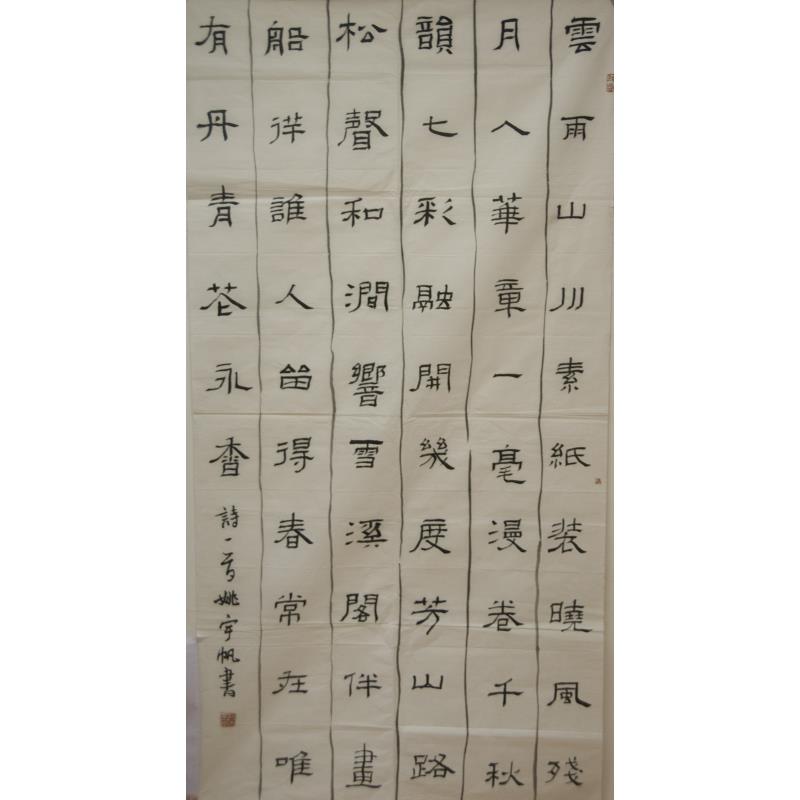 雲雨山川素紙装曉風殘
月入華章一毫漫卷千秋
韻七彩融開幾度芳山路
松聲和澗響雪溪閣伴畫
船徉誰人留得春常在唯
有丹青花永香
詩一首姚宇帆書